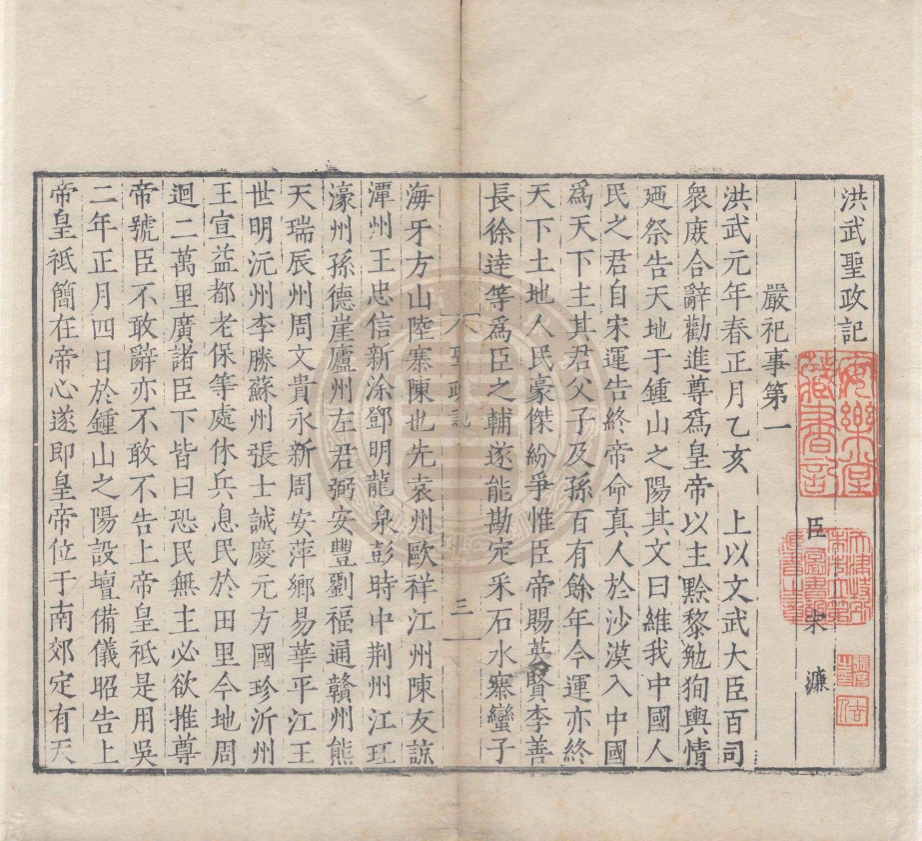 洪武聖政記
臣宋濂
嚴祀事第一
洪武元年春正月乙亥　上以文武大臣百司
衆庻合辭勸進尊爲皇帝以主黔黎勉狥輿情
廼祭告天地于鍾山之陽其文曰維我中國人
民之君自宋運告終帝命真人於沙漠入中國
爲天下主其君父子及孫百有餘年今運亦終
天下土地人民豪傑紛爭惟臣帝賜英賢李善
長徐逹等爲臣之輔遂能勘定采石水寨蠻子
聖政記
三
海牙方山陸寨陳也先袁州歐祥江州陳友諒
潭州王忠信新淦鄧明龍泉彭時中荆州江珏
濠州孫德崖廬州左君弼安豐劉福通贛州熊
天瑞辰州周文貴永新周安萍鄉易華平江王
世明沅州李勝蘇州張士誠慶元方國珍沂州
王宣益都老保等處休兵息民於田里今地周
迴二萬里廣諸臣下皆曰恐民無主必欲推尊
帝號臣不敢辭亦不敢不告上帝皇祗是用吳
二年正月四日於鍾山之陽設壇備儀昭告上
帝皇祗簡在帝心遂即皇帝位于南郊定有天
安樂堂藏書記